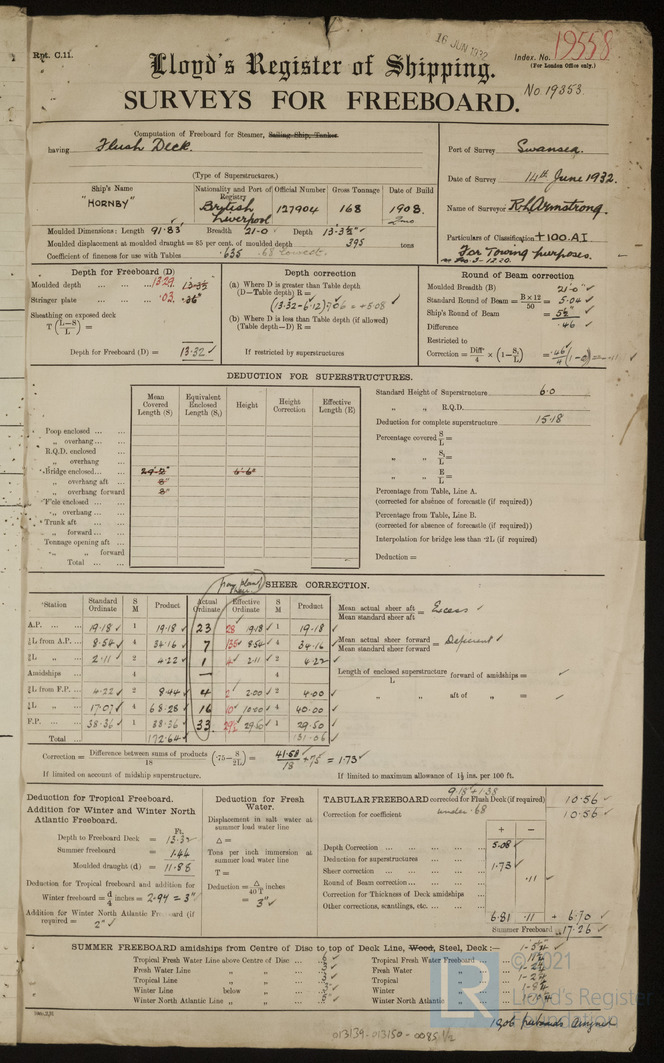 Rpt. C.11.
16 JUN 1932
Index. No. 19558
(For London Office only.)
Lloyd's Register of Shipping.
No 19353
SURVEYS FOR FREEBOARD.
Computation of Freeboard for Steamer, Sailing Ship, Tanker
having Flush Deck.
(Type of Superstructures.)
Port of Survey Swansea.
Date of Survey 14th June 1932.
Name of Surveyor R.L. Armstrong.
Particulars of Classification +100.A.I
For Towing purposes.
Ship's Name Nationality and Port of Registry Official Number Gross Tonnage Date of Build
"HORNBY" British Liverpool 127904 168 1908.
Moulded Dimensions: Length 91.83 Breadth 21.0 Depth 13-3½"
Moulded displacement at moulded draught = 85 per cent. of moulded depth 395 tons
Coefficient of fineness for use with Tables .635 .68 lowest.
Depth for Freeboard (D)
Moulded depth ... ... ... 13.29
Stringer plate ... ... ... .03
Sheathing on exposed deck
T (L-S/L) =
Depth for Freeboard (D) = 13.32
Depth correction
(a) Where D is greater than Table depth
(D—Table depth) R =
(13.32-6.12).706 = +5.08
(b) Where D is less than Table depth (if allowed)
(Table depth—D) R =
If restricted by superstructures
Round of Beam correction
Moulded Breadth (B) 21.0
Standard Round of Beam = B×12/50 = 5.04
Ship's Round of Beam = 5½"
Difference .46
Restricted to
Correction = Diff/4 × (1-S₁/L) = .46/4 (1-0) = -.11
DEDUCTION FOR SUPERSTRUCTURES.
Mean Covered Length (S) Equivalent Enclosed Length (S₁) Height Height Correction Effective Length (E)
Poop enclosed ... ...
„ overhang ... ...
R.Q.D. enclosed
„ overhang
Bridge enclosed... ... 6'-6"
„ overhang aft ... 8"
„ overhang forward 8"
F'cle enclosed ... ...
„ overhang ... ...
Trunk aft ...
„ forward... ...
Tonnage opening aft ...
„ „ forward
Total ... ...
Standard Height of Superstructure 6.0
„ „ R.Q.D.
Deduction for complete superstructure 15.18
Percentage covered S/L =
„ „ S₁/L =
„ „ E/L =
Percentage from Table, Line A.
(corrected for absence of forecastle (if required))
Percentage from Table, Line B.
(corrected for absence of forecastle (if required))
Interpolation for bridge less than ·2L (if required)
Deduction =
SHEER CORRECTION.
Station Standard Ordinate S M Product Actual Ordinate Effective Ordinate S M Product
A.P. ... ... 19.18 1 19.18 23 19.18 1 19.18
⅙L from A.P. ... 8.54 4 34.16 7 8.54 4 34.16
⅓L „ ... 2.11 2 4.22 1 2.11 2 4.22
Amidships ... 4 — 4
⅓L from F.P. ... 4.22 2 8.44 4 2.00 2 4.00
⅙L „ ... 17.07 4 68.28 16 10.00 4 40.00
F.P. ... ... 38.36 1 38.36 33 29.50 1 29.50
Total ... 172.64 131.06
Mean actual sheer aft / Mean standard sheer aft = Excess
Mean actual sheer forward / Mean standard sheer forward = Deficient
Length of enclosed superstructure / L forward of amidships =
„ „ aft of „ =
Correction = Difference between sums of products / 18 (·75 - S/2L) = 41.58/18 × .75 = 1.73
If limited on account of midship superstructure.
If limited to maximum allowance of 1½ ins. per 100 ft.
Deduction for Tropical Freeboard.
Addition for Winter and Winter North Atlantic Freeboard.
Ft.
Depth to Freeboard Deck = 13.32
Summer freeboard = 1.44
Moulded draught (d) = 11.88
Deduction for Tropical freeboard and addition for
Winter freeboard = d/4 inches = 2.94 = 3"
Addition for Winter North Atlantic Freeboard (if
required = 2"
Deduction for Fresh Water.
Displacement in salt water at
summer load water line
Δ =
Tons per inch immersion at
summer load water line
T =
Deduction = Δ/40 T inches
= 3"
9.18 + 1.38
TABULAR FREEBOARD corrected for Flush Deck (if required) 10.56
Correction for coefficient under .68 10.56
+ −
Depth Correction ... ... 5.08
Deduction for superstructures ...
Sheer correction ... ... 1.73
Round of Beam correction... ... .11
Correction for Thickness of Deck amidships
Other corrections, scantlings, etc. ...
6.81 .11 + 6.70
Summer Freeboard = 17.26
SUMMER FREEBOARD amidships from Centre of Disc to top of Deck Line, Wood, Steel, Deck :— 1-5¼
Tropical Fresh Water Line above Centre of Disc ... 6 Tropical Fresh Water Freeboard ... 11¼
Fresh Water Line „ „ ... 3 Fresh Water „ ... 1-2¼
Tropical Line „ „ ... 3 Tropical „ ... 1-2¼
Winter Line below „ ... 3 Winter „ ... 1-8¼
Winter North Atlantic Line „ „ ... 5 Winter North Atlantic „ ... 1-10¼
© 2021
LR
Lloyd's Register
Foundation
013139-013150-0085 1/2